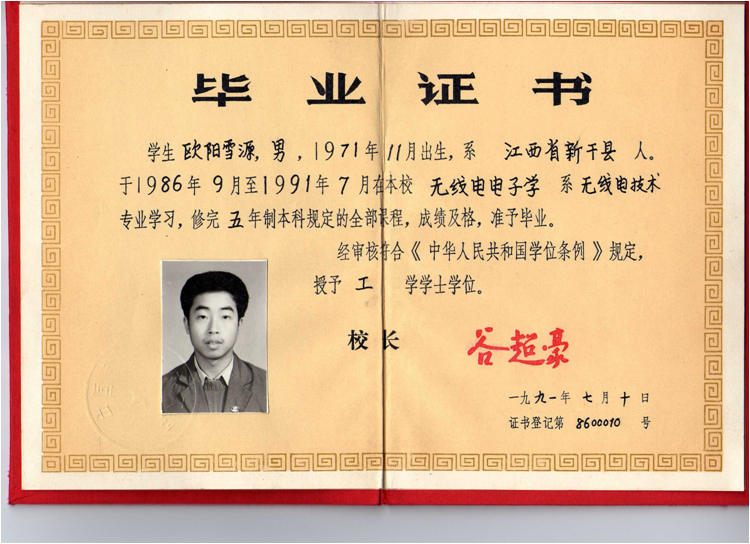 毕业证书
学生欧阳雪源,男,1971年11月出生,系 江西省新干县 人。
于1986年9月至1991年7月在本校 无线电电子学 系无线电技术
专业学习,修完五年制本科规定的全部课程,成绩及格,准予毕业。
经审核符合《中华人民共和国学位条例》规定,
授予 工 学学士学位。
校长 谷超豪
一九九一年七月十日
证书登记第 8600010 号